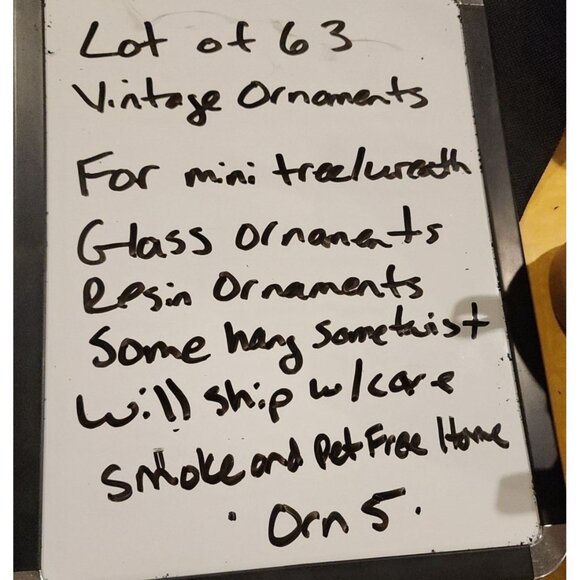 Lot of 63
Vintage Ornaments
For mini tree/wreath
Glass Ornaments
Resin Ornaments
Some hang some twist
Will ship w/care
Smoke and Pet Free Home
· Orn 5 ·